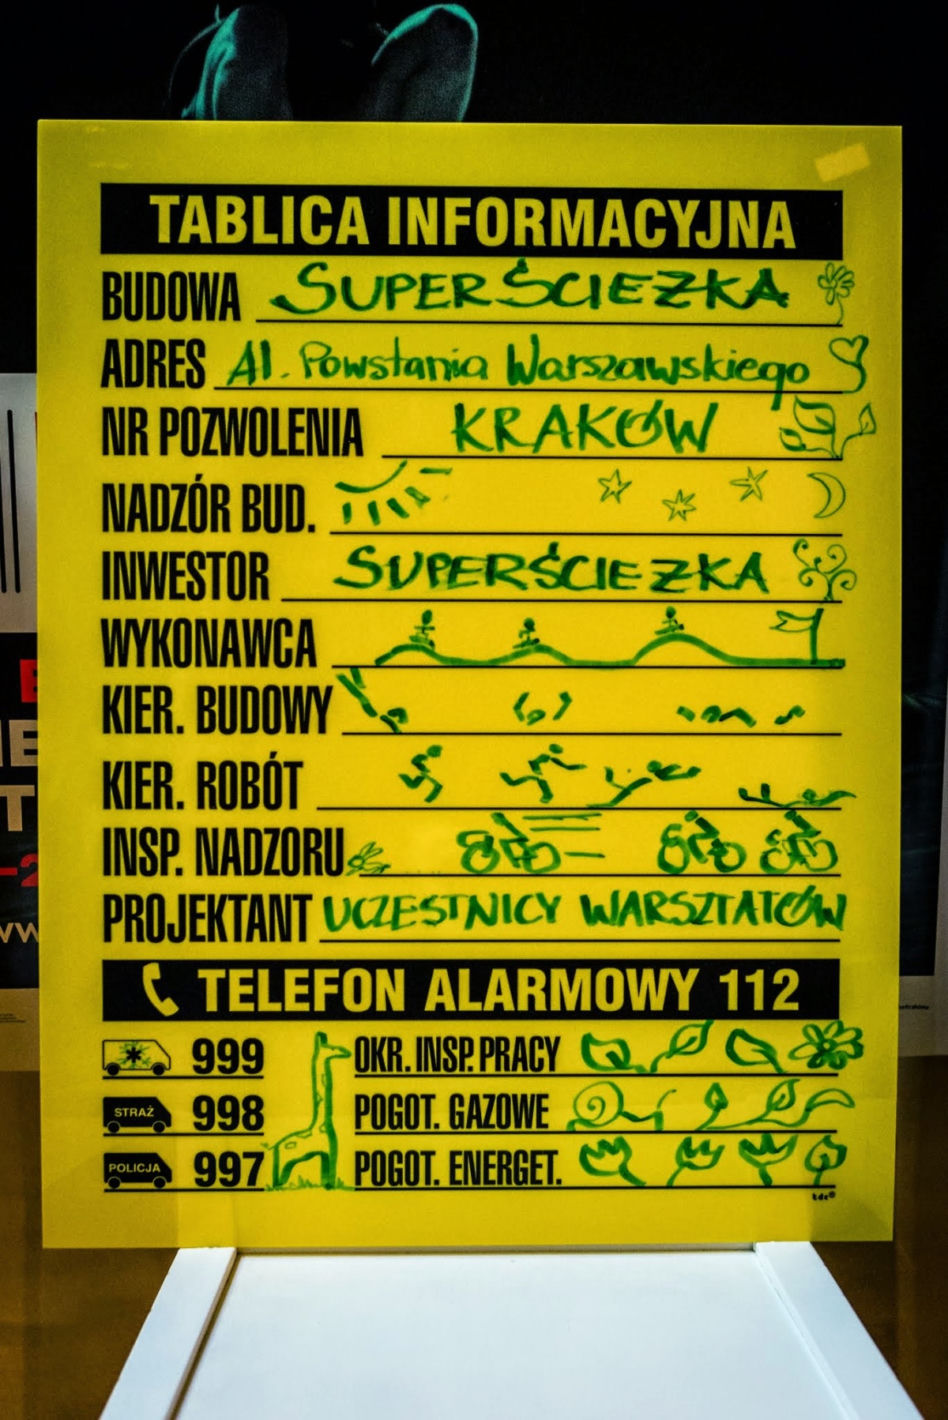 TABLICA INFORMACYJNA
BUDOWA SUPERŚCIEŻKA
ADRES Al. Powstania Warszawskiego
NR POZWOLENIA KRAKÓW
NADZÓR BUD.
INWESTOR SUPERŚCIEŻKA
WYKONAWCA
KIER. BUDOWY
KIER. ROBÓT
INSP. NADZORU
PROJEKTANT UCZESTNICY WARSZTATÓW
TELEFON ALARMOWY 112
999 OKR. INSP. PRACY
STRAŻ 998 POGOT. GAZOWE
POLICJA 997 POGOT. ENERGET.
tdc